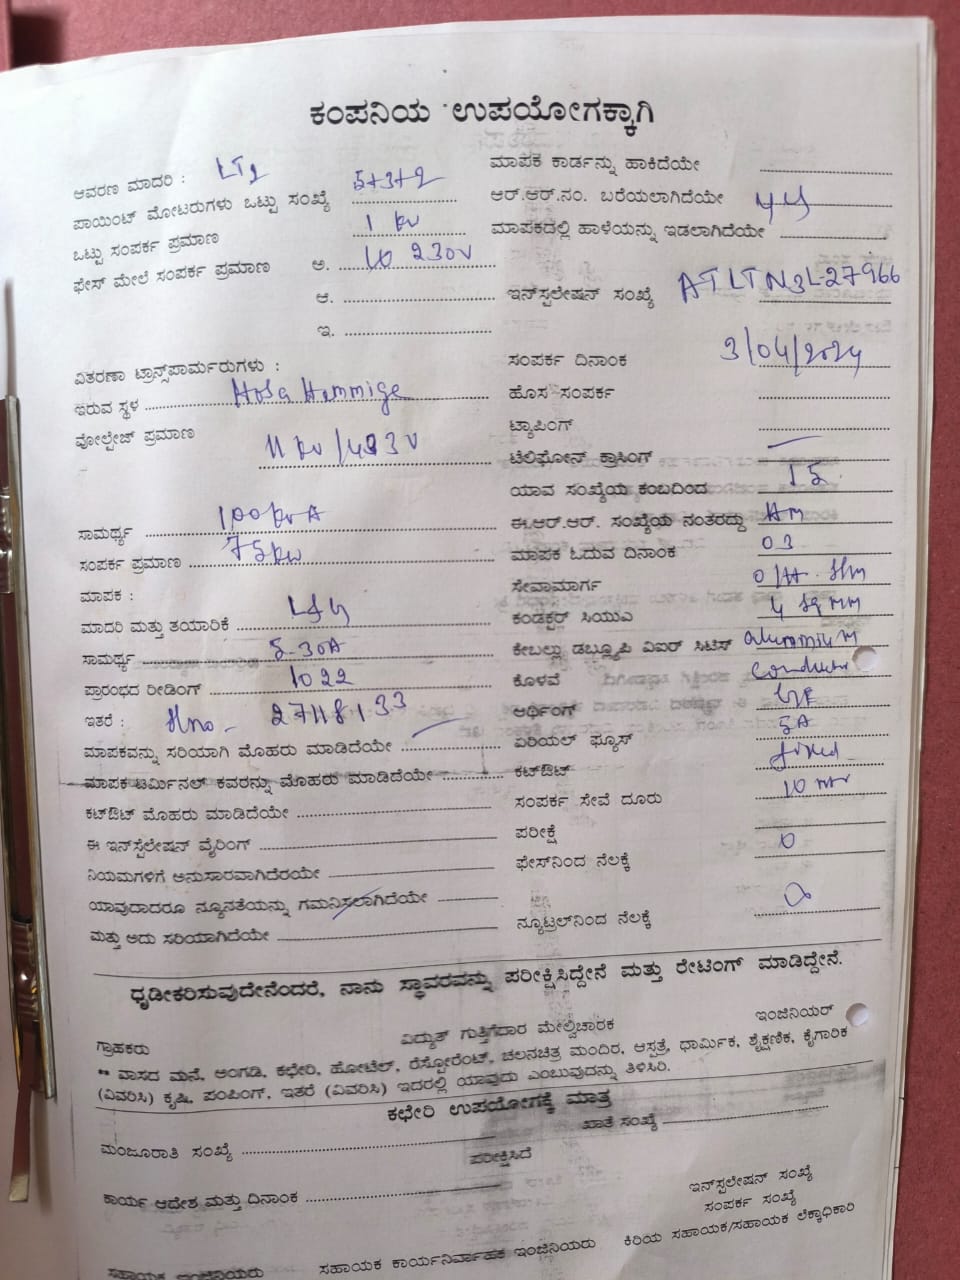 ಕಂಪನಿಯ ಉಪಯೋಗಕ್ಕಾಗಿ
ಆವರಣ ಮಾದರಿ : LT2
ಪಾಯಿಂಟ್ ಮೋಟರುಗಳು ಒಟ್ಟು ಸಂಖ್ಯೆ 5+3+2
ಒಟ್ಟು ಸಂಪರ್ಕ ಪ್ರಮಾಣ 1 kw
ಫೇಸ್ ಮೇಲೆ ಸಂಪರ್ಕ ಪ್ರಮಾಣ ಅ. 230V
ಆ.
ಇ.
ವಿತರಣಾ ಟ್ರಾನ್ಸ್‌ಪಾರ್ಮರುಗಳು :
ಇರುವ ಸ್ಥಳ Hosa Hemmige
ವೋಲ್ಟೇಜ್ ಪ್ರಮಾಣ 11 kv /433 V
ಸಾಮರ್ಥ್ಯ 100 kvA
ಸಂಪರ್ಕ ಪ್ರಮಾಣ 75kw
ಮಾಪಕ :
ಮಾದರಿ ಮತ್ತು ತಯಾರಿಕೆ L&G
ಸಾಮರ್ಥ್ಯ 5-30A
ಪ್ರಾರಂಭದ ರೀಡಿಂಗ್ 1022
ಇತರೆ : Slno - 27118133
ಮಾಪಕವನ್ನು ಸರಿಯಾಗಿ ಮೊಹರು ಮಾಡಿದೆಯೇ
ಮಾಪಕ ಟರ್ಮಿನಲ್ ಕವರನ್ನು ಮೊಹರು ಮಾಡಿದೆಯೇ
ಕಟ್‌ಔಟ್ ಮೊಹರು ಮಾಡಿದೆಯೇ
ಈ ಇನ್‌ಸ್ಟಲೇಷನ್ ವೈರಿಂಗ್
ನಿಯಮಗಳಿಗೆ ಅನುಸಾರವಾಗಿದೆರಯೇ
ಯಾವುದಾದರೂ ನ್ಯೂನತೆಯನ್ನು ಗಮನಿಸಲಾಗಿದೆಯೇ
ಮತ್ತು ಅದು ಸರಿಯಾಗಿದೆಯೇ
ಮಾಪಕ ಕಾರ್ಡನ್ನು ಹಾಕಿದೆಯೇ
ಆರ್.ಆರ್.ನಂ. ಬರೆಯಲಾಗಿದೆಯೇ
ಮಾಪಕದಲ್ಲಿ ಹಾಳೆಯನ್ನು ಇಡಲಾಗಿದೆಯೇ
ಇನ್‌ಸ್ಟಲೇಷನ್ ಸಂಖ್ಯೆ ATLTN3L-27966
ಸಂಪರ್ಕ ದಿನಾಂಕ 3/04/2024
ಹೊಸ ಸಂಪರ್ಕ
ಟ್ಯಾಪಿಂಗ್
ಟೆಲಿಫೋನ್ ಕ್ರಾಸಿಂಗ್
ಯಾವ ಸಂಖ್ಯೆಯ ಕಂಬದಿಂದ 15
ಈ.ಆರ್.ಆರ್. ಸಂಖ್ಯೆಯ ನಂತರದ್ದು
ಮಾಪಕ ಓದುವ ದಿನಾಂಕ 03
ಸೇವಾಮಾರ್ಗ
ಕಂಡಕ್ಟರ್ ಸಿಯುಎ 4 sq mm
ಕೇಬಲ್ಲು ಡಬ್ಲ್ಯೂಪಿ ವಿಐರ್ ಸಿಟಿಸ್ aluminium
ಕೊಳವೆ Conductor
ಆರ್ಥಿಂಗ್
ಏರಿಯಲ್ ಫ್ಯೂಸ್ 5A
ಕಟ್‌ಔಟ್ fixed
ಸಂಪರ್ಕ ಸೇವೆ ದೂರು 10 mtr
ಪರೀಕ್ಷೆ
ಫೇಸ್‌ನಿಂದ ನೆಲಕ್ಕೆ
ನ್ಯೂಟ್ರಲ್‌ನಿಂದ ನೆಲಕ್ಕೆ
ಧೃಡೀಕರಿಸುವುದೇನೆಂದರೆ, ನಾನು ಸ್ಥಾವರವನ್ನು ಪರೀಕ್ಷಿಸಿದ್ದೇನೆ ಮತ್ತು ರೇಟಿಂಗ್ ಮಾಡಿದ್ದೇನೆ.
ಗ್ರಾಹಕರು ವಿದ್ಯುತ್ ಗುತ್ತಿಗೆದಾರ ಮೇಲ್ವಿಚಾರಕ ಇಂಜಿನಿಯರ್
** ವಾಸದ ಮನೆ, ಅಂಗಡಿ, ಕಛೇರಿ, ಹೋಟೆಲ್, ರೆಸ್ಟೋರೆಂಟ್, ಚಲನಚಿತ್ರ ಮಂದಿರ, ಆಸ್ಪತ್ರೆ, ಧಾರ್ಮಿಕ, ಶೈಕ್ಷಣಿಕ, ಕೈಗಾರಿಕೆ
(ವಿವರಿಸಿ) ಕೃಷಿ, ಪಂಪಿಂಗ್, ಇತರೆ (ವಿವರಿಸಿ) ಇದರಲ್ಲಿ ಯಾವುದು ಎಂಬುವುದನ್ನು ತಿಳಿಸಿರಿ.
ಕಛೇರಿ ಉಪಯೋಗಕ್ಕೆ ಮಾತ್ರ
ಮಂಜೂರಾತಿ ಸಂಖ್ಯೆ ಖಾತೆ ಸಂಖ್ಯೆ
ಪರೀಕ್ಷಿಸಿದೆ
ಕಾರ್ಯ ಆದೇಶ ಮತ್ತು ದಿನಾಂಕ
ಇನ್‌ಸ್ಟಲೇಷನ್ ಸಂಖ್ಯೆ
ಸಂಪರ್ಕ ಸಂಖ್ಯೆ
ಸಹಾಯಕ ಇಂಜಿನಿಯರು ಸಹಾಯಕ ಕಾರ್ಯನಿರ್ವಾಹಕ ಇಂಜಿನಿಯರು ಕಿರಿಯ ಸಹಾಯಕ/ಸಹಾಯಕ ಲೆಕ್ಕಾಧಿಕಾರಿ